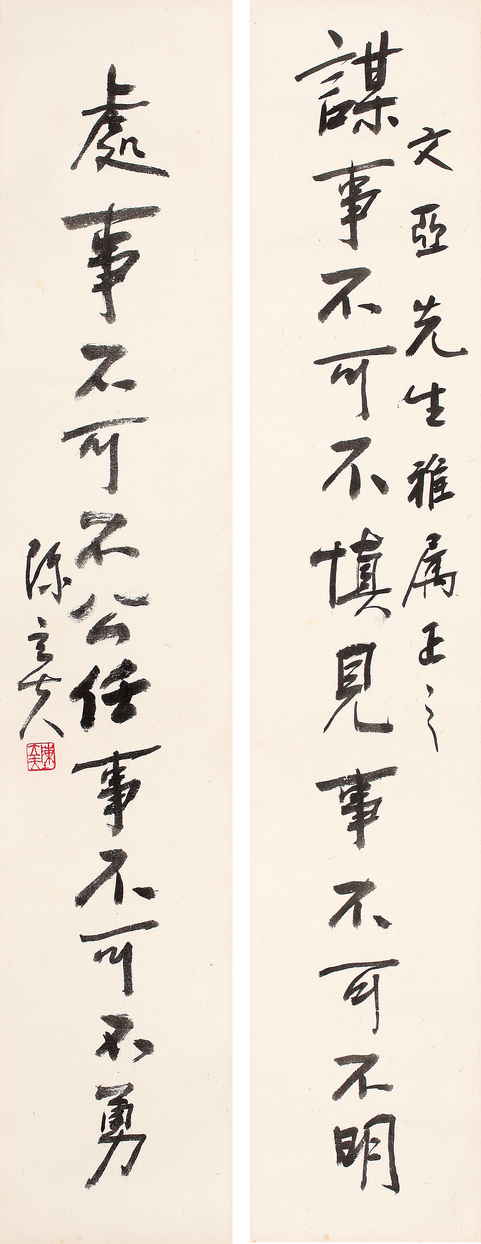 文亞先生雅屬正之
謀事不可不慎見事不可不明
處事不可不公任事不可不勇
陳立夫